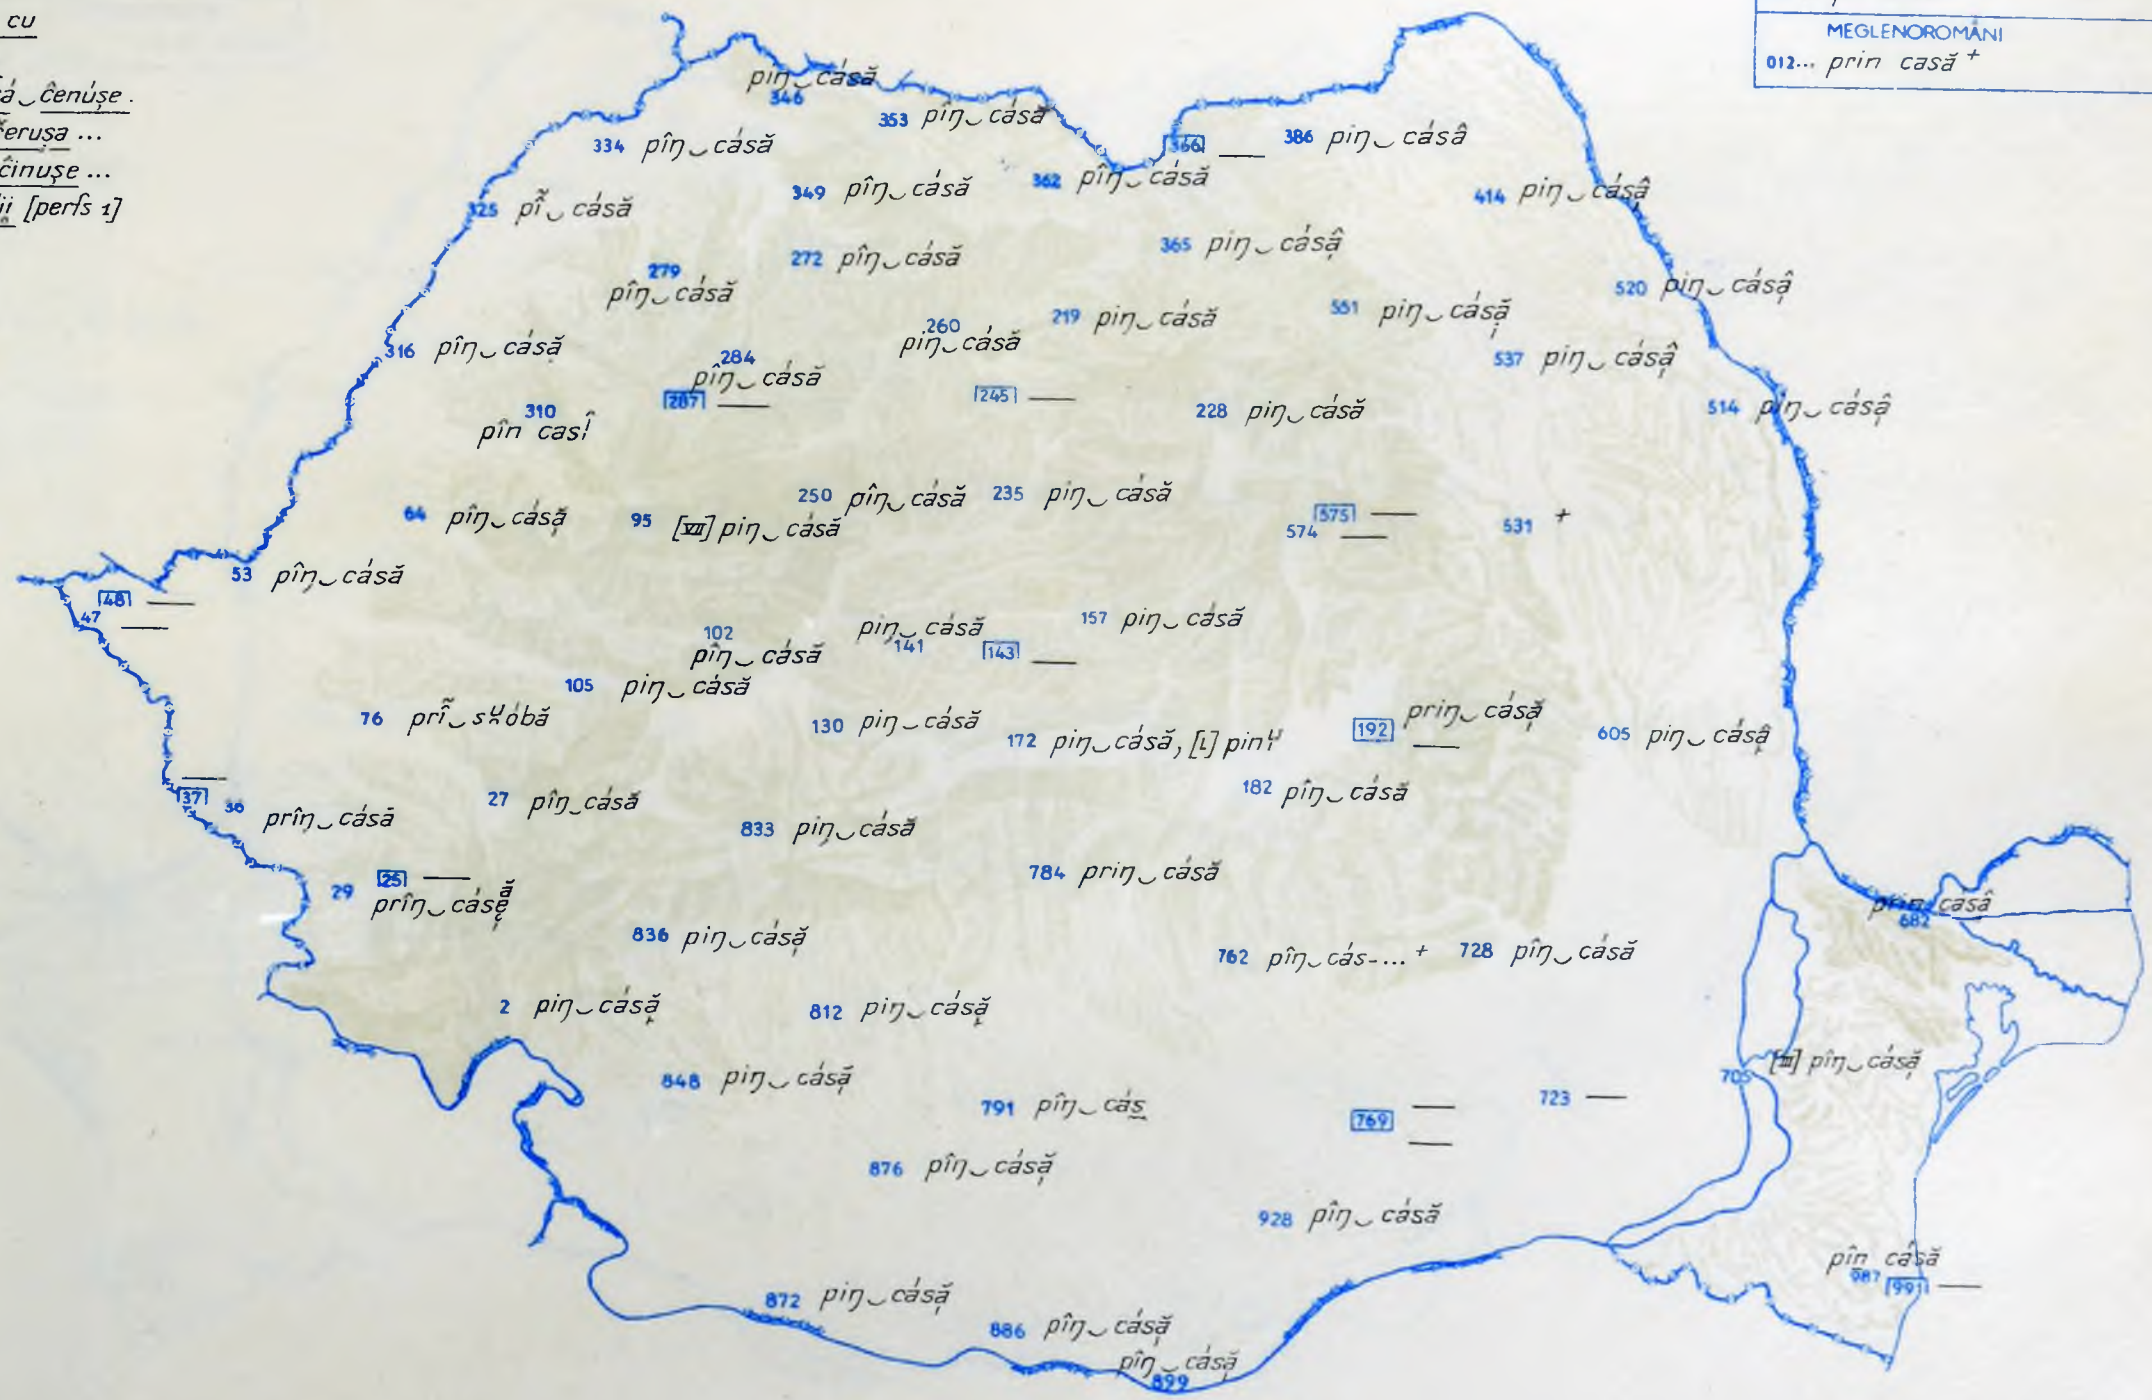 cu
čenúșe.
čerușa ...
činușe ...
[perfs 1]
MEGLENOROMÂNI
012... prin casă +
pin‿cásă
346
353 pîŋ‿cásă
334 pîŋ‿cásă
366 —
386 piŋ‿cásâ
349 pîŋ‿cásă
362 pîŋ‿cásă
414 piŋ‿cásâ̦
325 pĩ‿cásă
272 pîŋ‿cásă
365 piŋ‿cásâ̦
279
pîŋ‿cásă
520 piŋ‿cásâ̦
260
piŋ‿cásă
219 piŋ‿cásă
551 piŋ‿cásă̦
316 pîŋ‿cásă
284
pîŋ‿cásă
537 piŋ‿cásâ̦
287 —
245 —
228 piŋ‿cásă
514 piŋ‿cásâ̦
310
pîn casî
64 pîŋ‿cásă̦
95 [VII] piŋ‿cásă
250 pîŋ‿cásă
235 piŋ‿cásă
575 —
574 —
531 +
53 pîŋ‿cásă
48 —
47 —
102
pîŋ‿cásă
piŋ‿cásă
141
143 —
157 piŋ‿cásă
105 piŋ‿cásă
76 prĩ‿sᵘóbă
130 piŋ‿cásă
172 piŋ‿cásă, [L] pin
192 priŋ‿cásă̦
—
605 piŋ‿cásâ̦
182 pîŋ‿cásă
37 —
36 prîŋ‿cásă
27 pîŋ‿cásă
833 piŋ‿cásă
784 priŋ‿cásă
25 —
29 prîŋ‿cásę̆
836 piŋ‿cásă̦
prin casâ
682
762 pîŋ‿cás-... +
728 pîŋ‿cásă
2 piŋ‿cásă̦
812 piŋ‿cásă̦
705 [III] pîŋ‿cásă̦
848 piŋ‿cásă̦
791 pîŋ‿cás
769 —
—
723 —
876 pîŋ‿cásă̦
928 pîŋ‿cásă
pîn cásă
987 991 —
872 piŋ‿cásă̦
886 pîŋ‿cásă̦
pîŋ‿cásă̦
899